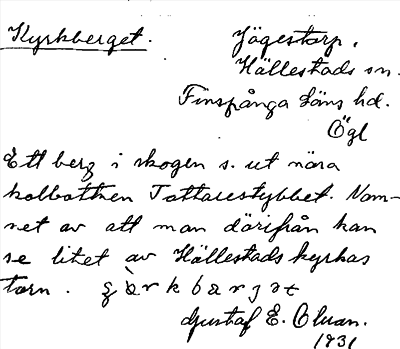 Kyrkberget.
Jögestorp.
Hällestads sn.
Finspånga läns hd.
Ögl
Ett berg i skogen s. ut nära
kolbottnen Tattarestybbet. Nam-
net av att man därifrån kan
se litet av Hällestads kyrkas
torn.
Gustaf E. Olsson.
1931